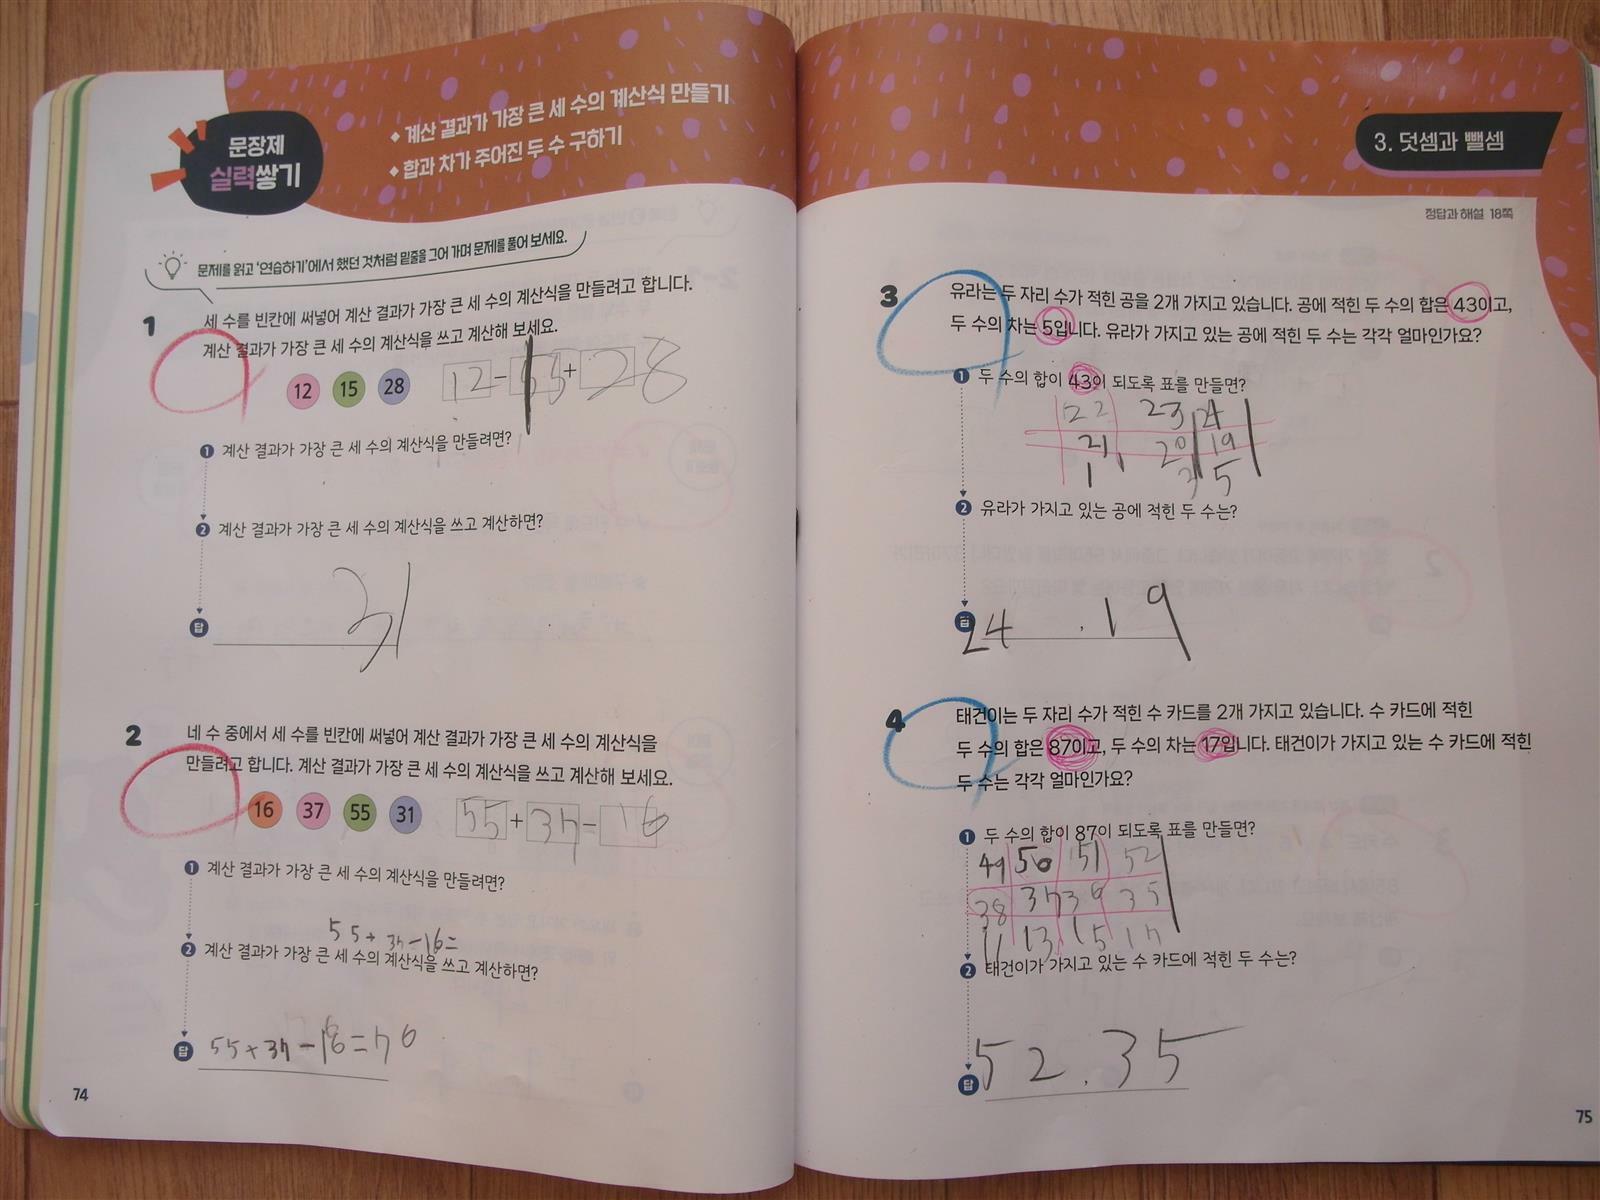 문장제
실력쌓기
◆ 계산 결과가 가장 큰 세 수의 계산식 만들기
◆ 합과 차가 주어진 두 수 구하기
문제를 읽고 '연습하기'에서 했던 것처럼 밑줄을 그어 가며 문제를 풀어 보세요.
1 세 수를 빈칸에 써넣어 계산 결과가 가장 큰 세 수의 계산식을 만들려고 합니다.
계산 결과가 가장 큰 세 수의 계산식을 쓰고 계산해 보세요.
12 15 28 12 - 15 + 28
1 계산 결과가 가장 큰 세 수의 계산식을 만들려면?
2 계산 결과가 가장 큰 세 수의 계산식을 쓰고 계산하면?
답 31
2 네 수 중에서 세 수를 빈칸에 써넣어 계산 결과가 가장 큰 세 수의 계산식을
만들려고 합니다. 계산 결과가 가장 큰 세 수의 계산식을 쓰고 계산해 보세요.
16 37 55 31 55 + 37 - 16
1 계산 결과가 가장 큰 세 수의 계산식을 만들려면?
55+37-16=
2 계산 결과가 가장 큰 세 수의 계산식을 쓰고 계산하면?
답 55+37-16=76
74
3. 덧셈과 뺄셈
정답과 해설 18쪽
3 유라는 두 자리 수가 적힌 공을 2개 가지고 있습니다. 공에 적힌 두 수의 합은 43이고,
두 수의 차는 5입니다. 유라가 가지고 있는 공에 적힌 두 수는 각각 얼마인가요?
1 두 수의 합이 43이 되도록 표를 만들면?
22 23 24
21 20 19
1 3 5
2 유라가 가지고 있는 공에 적힌 두 수는?
답 24 . 19
4 태건이는 두 자리 수가 적힌 수 카드를 2개 가지고 있습니다. 수 카드에 적힌
두 수의 합은 87이고, 두 수의 차는 17입니다. 태건이가 가지고 있는 수 카드에 적힌
두 수는 각각 얼마인가요?
1 두 수의 합이 87이 되도록 표를 만들면?
49 50 51 52
38 37 36 35
11 13 15 17
2 태건이가 가지고 있는 수 카드에 적힌 두 수는?
답 52 . 35
75